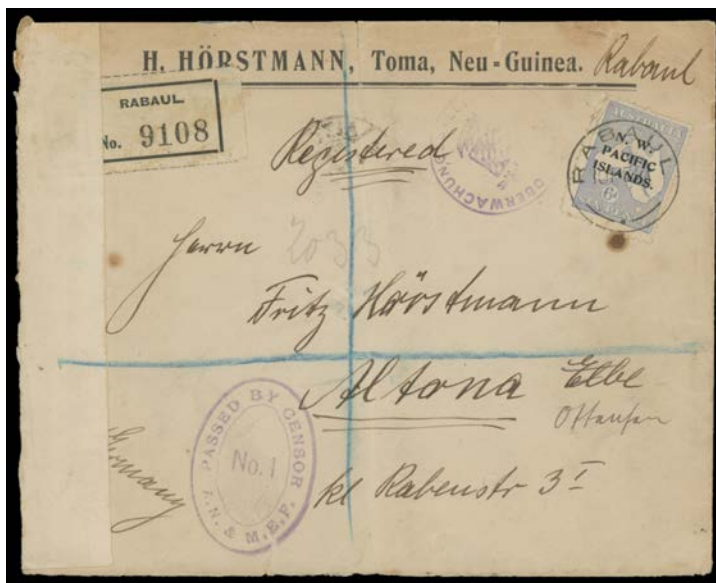 H. HÖRSTMANN, Toma, Neu-Guinea. Rabaul
RABAUL
No. 9108
Registered
ÜBERWACHUNG
AUSTRALIA
N. W.
PACIFIC
ISLANDS.
6D
RABAUL
Herrn
2033
Fritz Hörstmann
Altona Elbe
Ottensen
PASSED BY CENSOR
No. 1
A.N. & M.E.F.
Germany
kl Rabenstr 3 I